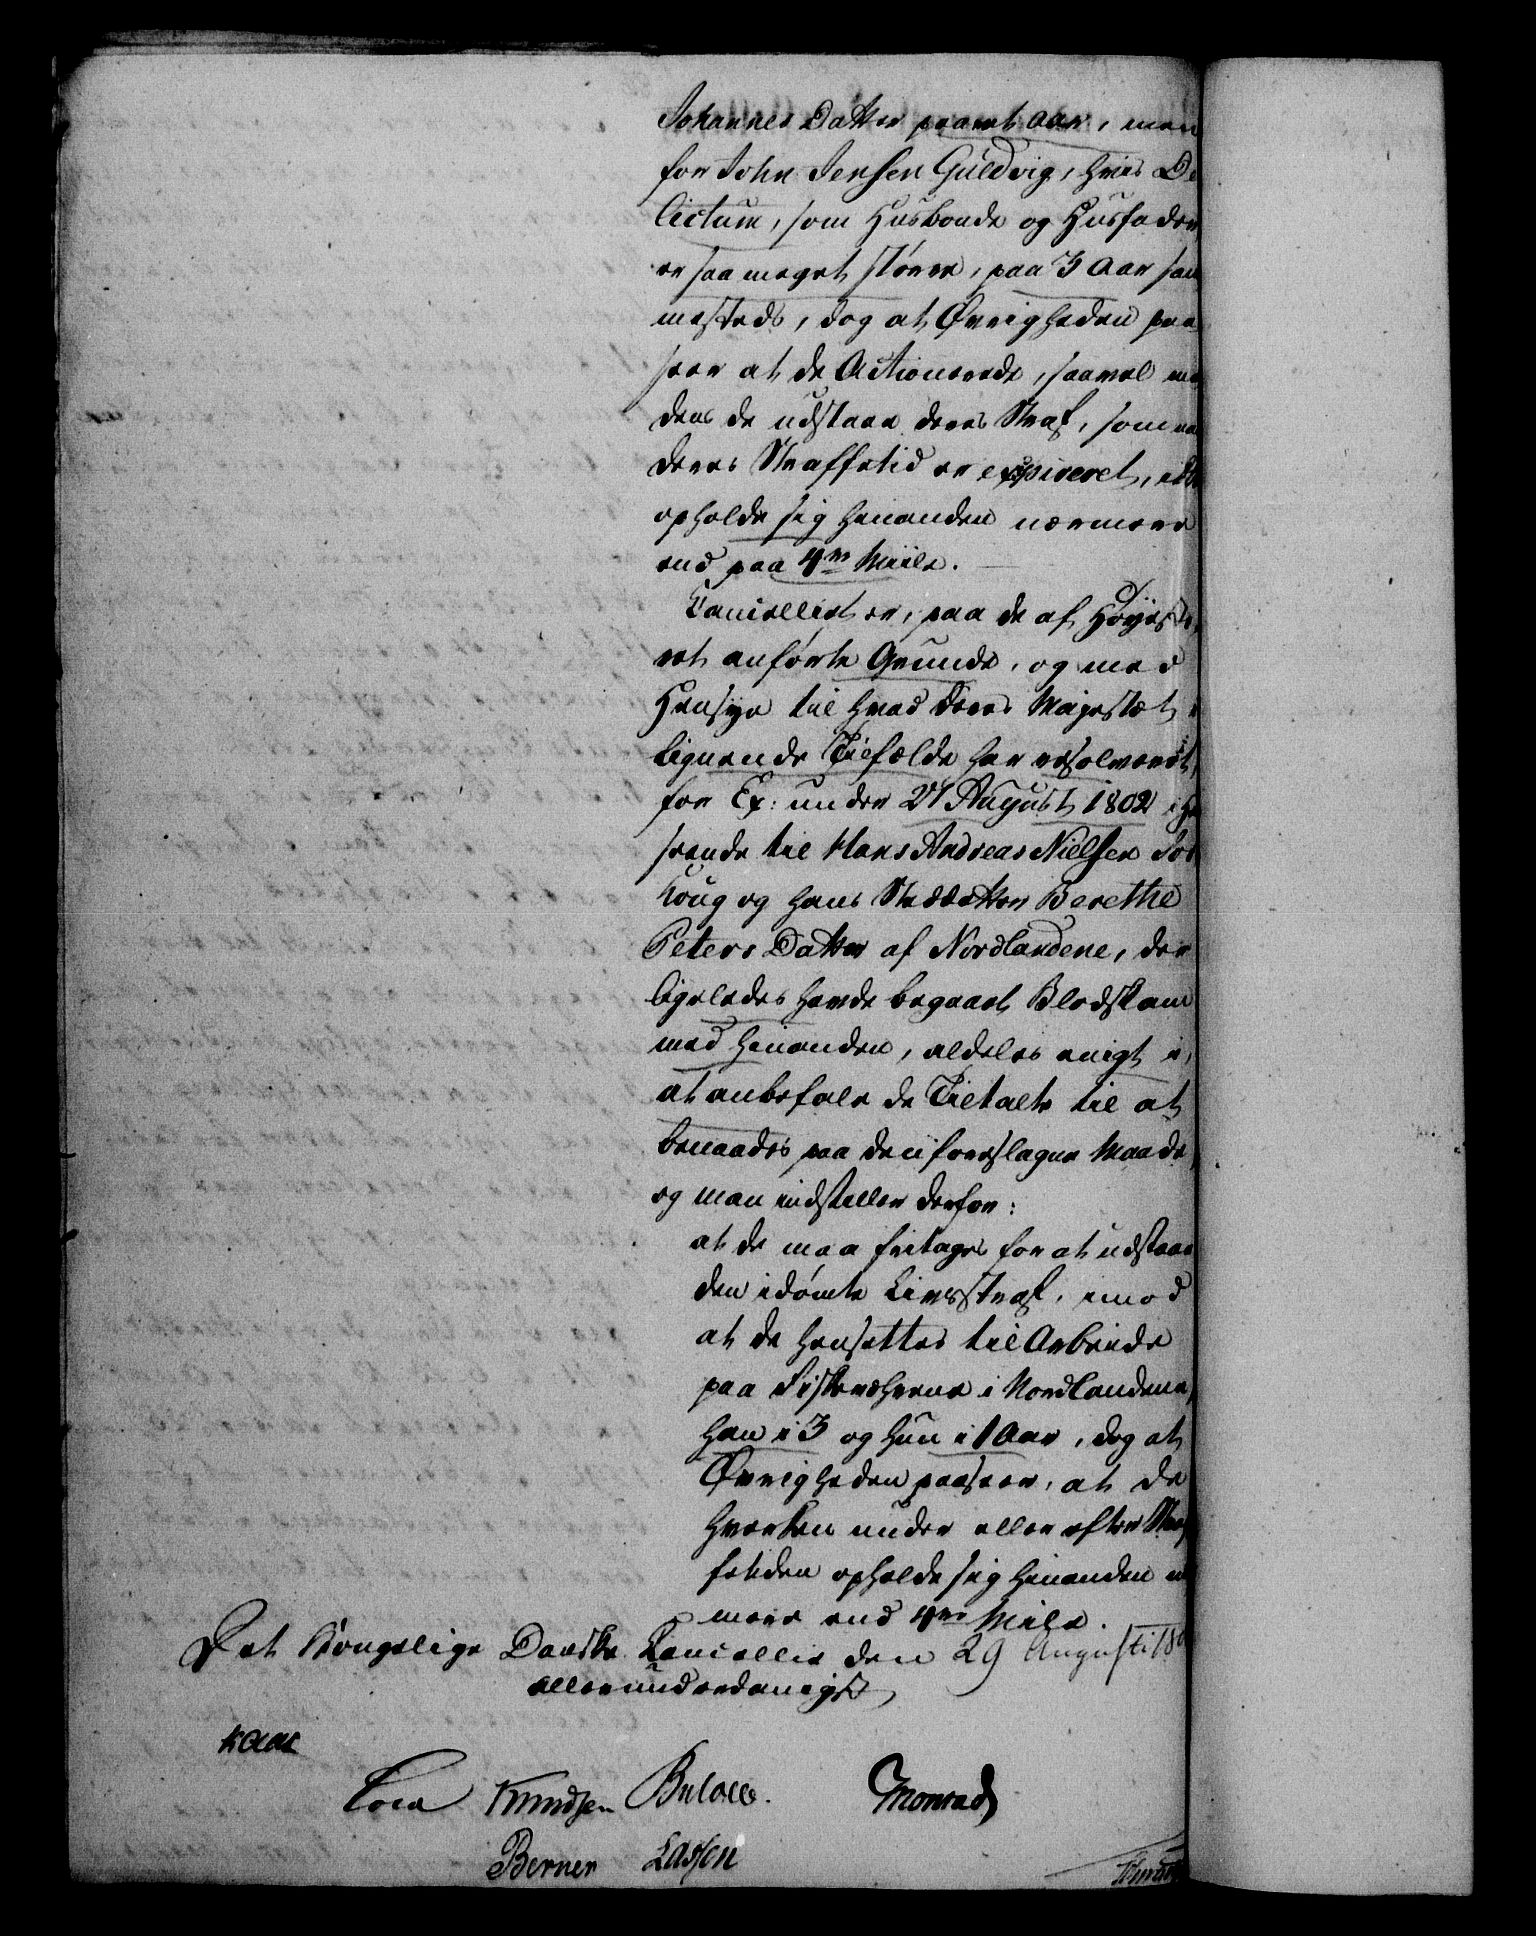 Johannes Datter paa et Aar, men
for John Jensen Guldvig, hvis De
lictum, som Huusbonde og Huusfader
er saa meget større, paa 3 Aar sam
mesteds, dog at Øvrigheden paa
seer at de Actionerede, saavel me
dens de udstaae deres Straf, som naar
deres Straffetid er expireret, ikke
opholde sig hinanden nærmere
end paa 4re Miile.
Cancelliet er, paa de af Høyeste
ret anførte Grunde, og med
Hensyn til hvad Deres Majestæt i
lignende Tilfælde har resolveret,
for Ex: under 27 August 1802 i Hen
seende til Hans Andreas Nielsen
og hans Steddatter Berethe
Peters Datter af Nordlandene, der
ligeledes havde begaaet Blodskam
med hinanden, aldeles enigt i,
at anbefale de Tiltalte til at
benaades paa den foreslagne Maade,
og man indstiller derfor:
at de maa fritages for at udstaae
den idømte Livsstraf, imod
at de hensættes til Arbeide
paa Fiskeværene i Nordlandene,
han i 3 og hun i 1 Aar, dog at
Øvrigheden paaseer, at de
hverken under eller efter Straf
fetiden opholde sig hinanden nær
mere end 4re Mile.
Det Kongelige Danske Cancellie den 29 Augusti 18
allerunderdanigst
Kaas
Cold Knudsen Bülow. Monrad
Berner Lassen